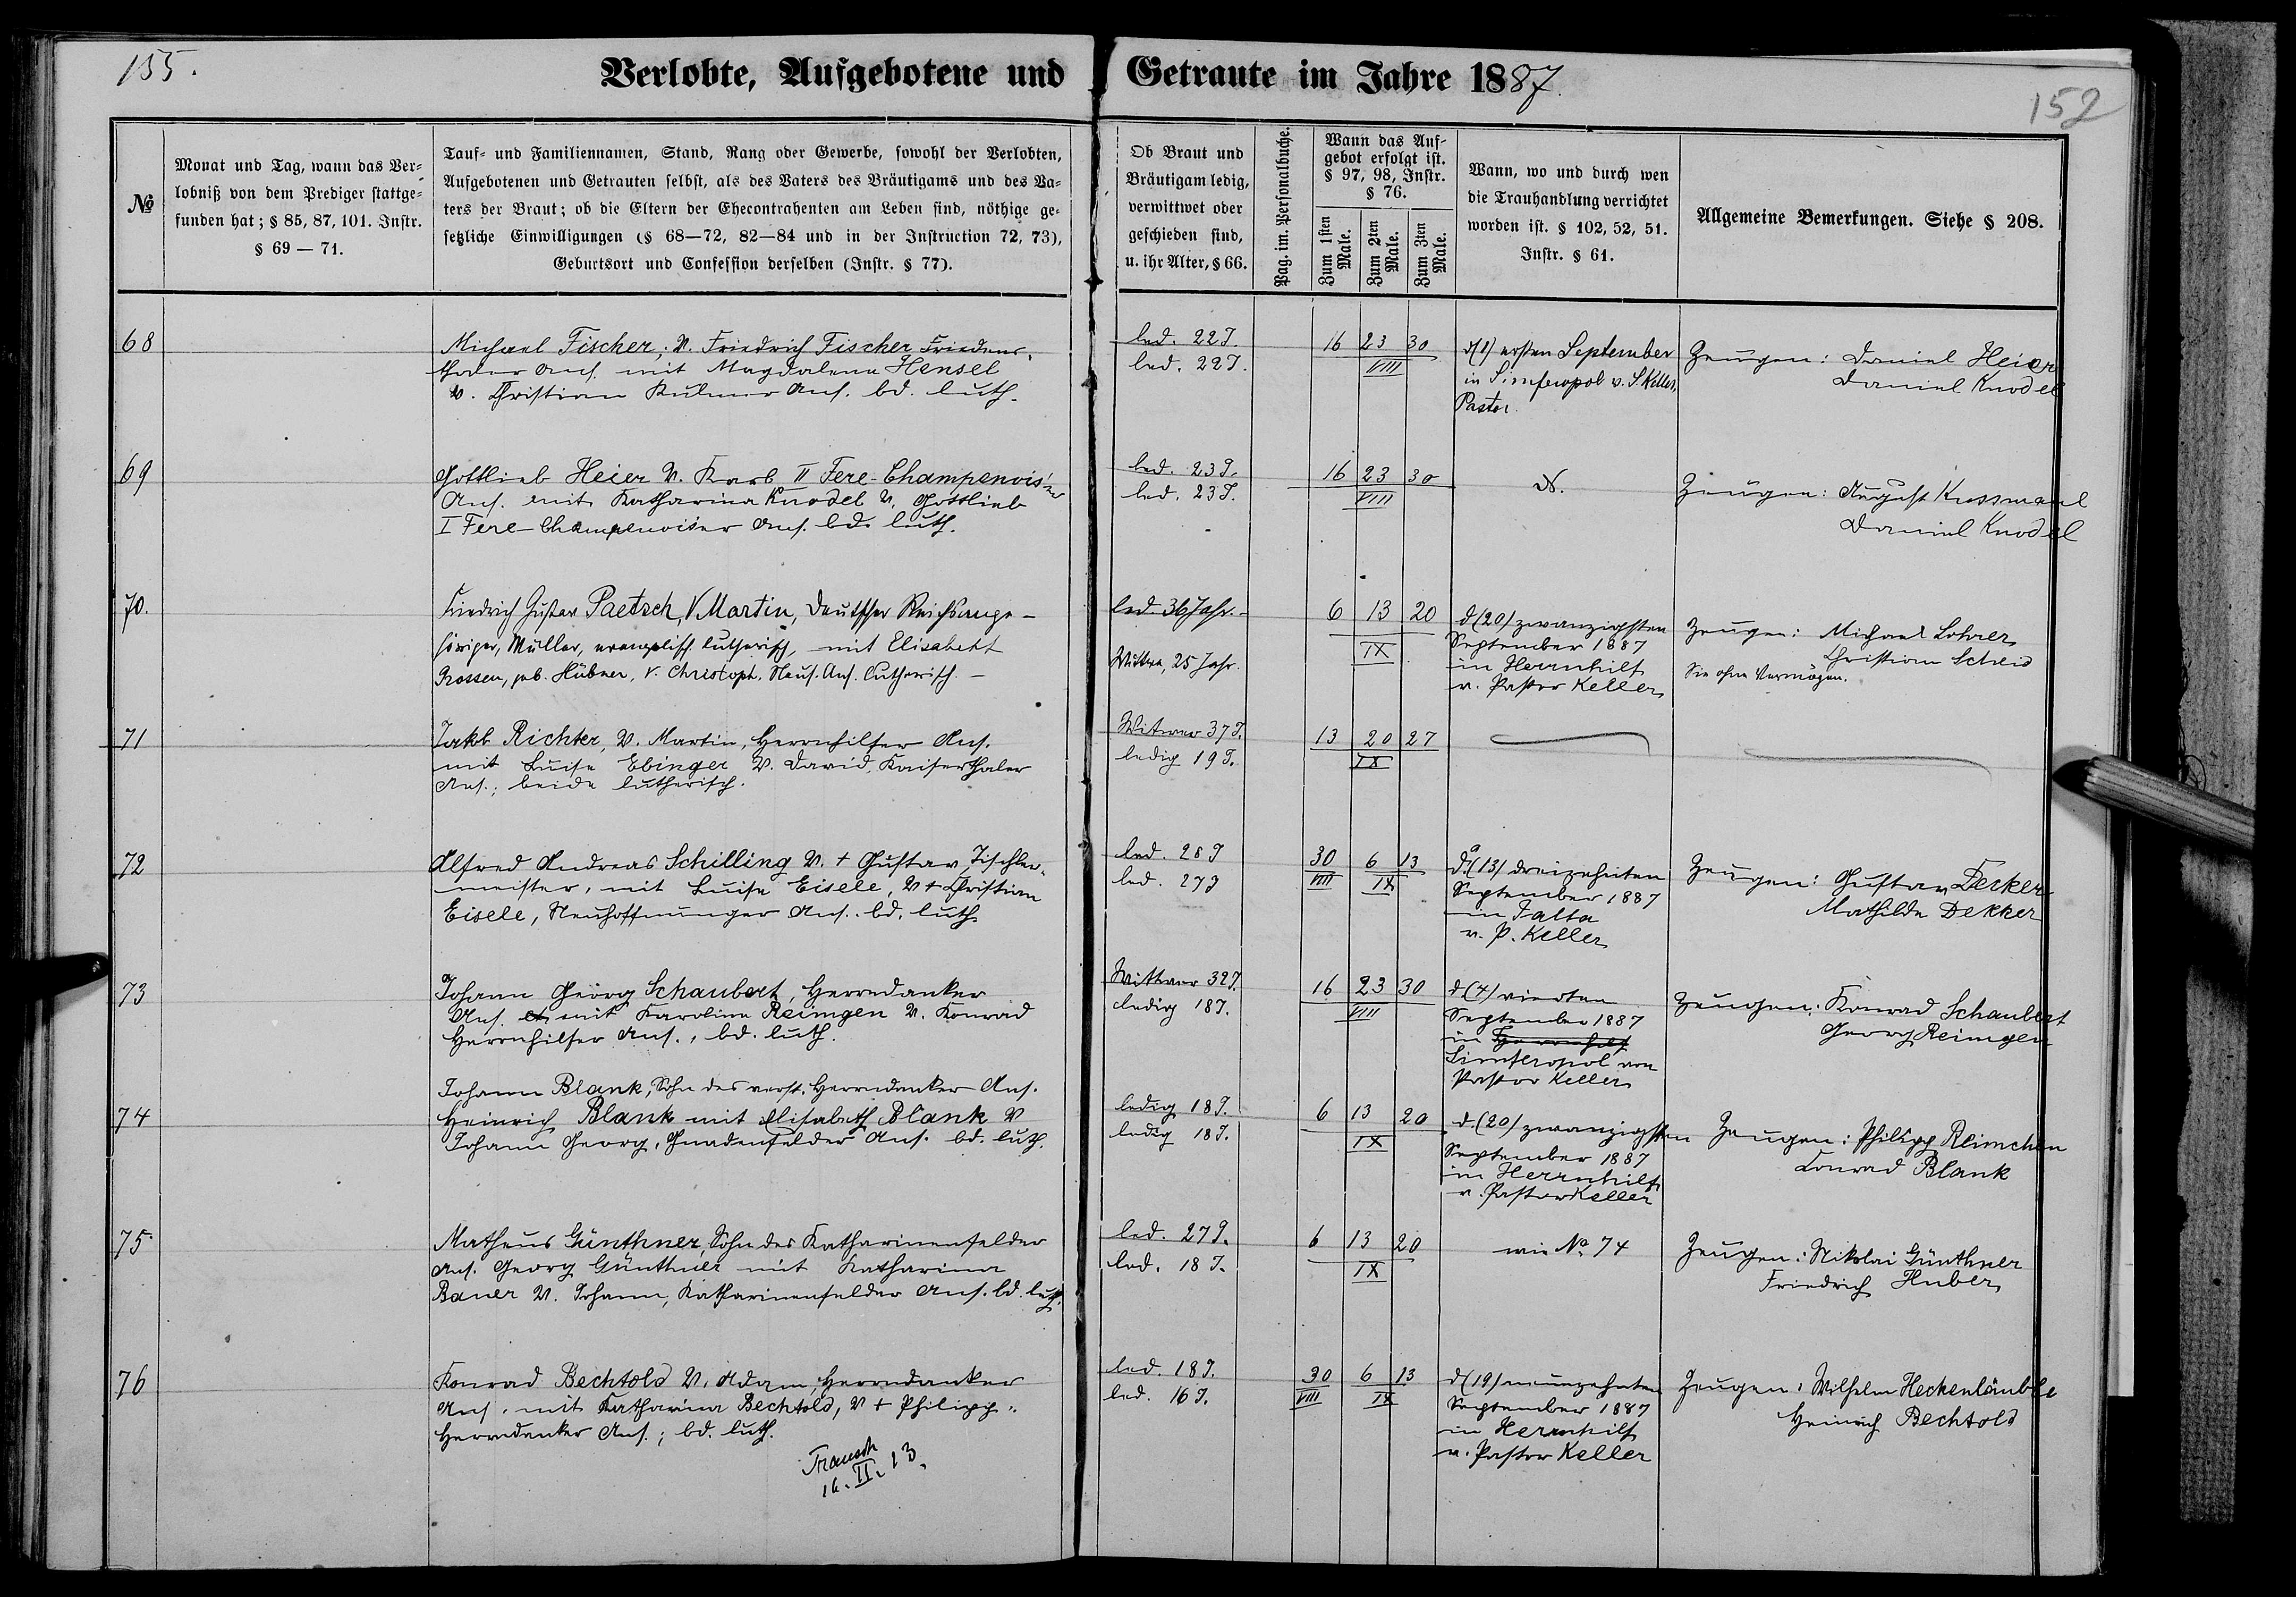 155.
Verlobte, Aufgebotene und Getraute im Jahre 1887.
152
№
Monat und Tag, wann das Ver-
lobniß von dem Prediger stattge-
funden hat; § 85, 87, 101. Instr.
§ 69 — 71.
Tauf- und Familiennamen, Stand, Rang oder Gewerbe, sowohl der Verlobten,
Aufgebotenen und Getrauten selbst, als des Vaters des Bräutigams und des Va-
ters der Braut; ob die Eltern der Ehecontrahenten am Leben sind, nöthige ge-
setzliche Einwilligungen (§ 68—72, 82—84 und in der Instruction 72, 73),
Geburtsort und Confession derselben (Instr. § 77).
Ob Braut und
Bräutigam ledig,
verwittwet oder
geschieden sind,
u. ihr Alter, § 66.
Pag. im. Personalbuche.
Wann das Auf-
gebot erfolgt ist.
§ 97, 98, Instr.
§ 76.
Zum 1sten
Male.
Zum 2ten
Male.
Zum 3ten
Male.
Wann, wo und durch wen
die Trauhandlung verrichtet
worden ist. § 102, 52, 51.
Instr. § 61.
Allgemeine Bemerkungen. Siehe § 208.
68
Michael Fischer, V. Friedrich Fischer Friedens-
thaler Ans. mit Magdalena Hensel
V. Christian Kulmer Ans. bd. luth.
led. 22 J.
led. 22 J.
16 23 30
VIII
d(1) ersten September
in Simferopol v. S. Keller,
Pastor.
Zeugen: Daniel Heier
Daniel Knodel
69
Gottlieb Heier V. Karl II Fere-Champenois'er
Ans. mit Katharina Knodel V. Gottlieb
I Fere-Champenoiser Ans. bd. luth.
led. 23 J.
led. 23 J.
16 23 30
VIII
Zeugen: August Kussmaul
Daniel Knodel
70.
Friedrich Gustav Paetzsch, V. Martin, Deutscher Reichsange-
höriger, Müller, evangelisch lutherisch, mit Elisabeth
Rossen, geb. Hübner, V. Christoph, Neus. Ans. lutherisch. —
led. 36 Jahr. —
Wittwe, 25 Jahr.
6 13 20
IX
d(20) zwanzigsten
September 1887
in Herrnhilf
v. Pastor Keller
Zeugen: Michael Lohrer
Christian Scheid
Sie ohne Vermögen.
71
Jakob Richter, V. Martin, Herrnhilfer Ans.
mit Luise Ebinger V. David, Kaiserthaler
Ans.; beide lutherisch.
Witwer 37 J.
ledig 19 J.
13 20 27
IX
72
Alfred Andreas Schilling V. + Gustav, Tischler-
meister, mit Luise Eisele, V + Christian
Eisele, Neuhoffnunger Ans. bd. luth
led. 28 J
led. 27 J
30 6 13
VIII IX
d.(13) dreizehnten
September 1887
in Jalta
v. P. Keller
Zeugen: Gustav Decker
Mathilde Dekker
73
Johann Georg Schaubert, Herrndanker
Ans. mit Karoline Reimgen V. Konrad
Herrnhilfer Ans., bd. luth.
Wittwer 32 J.
ledig 18 J.
16 23 30
VIII
d(4) vierten
September 1887
in Herrnhilf
Simferopol von
Pastor Keller
Zeugen: Konrad Schaubert
Georg Reimgen
74
Johann Blank, Sohn des verst. Herrndanker Ans.
Heinrich Blank mit Elisabeth Blank V
Johann Georg, Gnadenfelder Ans. bd. luth.
ledig 18 J.
ledig 18 J.
6 13 20
IX
d.(20) zwanzigsten
September 1887
in Herrnhilf
v. Pastor Keller
Zeugen: Philipp Reimchen
Konrad Blank
75
Matheus Günthner, Sohn des Katharinenfelder
Ans. Georg Günthner mit Katharina
Bauer V. Johann, Katharinenfelder Ans. bd. luth.
led. 27 J.
led. 18 J.
6 13 20
IX
wie № 74
Zeugen: Nikolai Günthner
Friedrich Huber
76
Konrad Bechtold V. Adam, Herrndanker
Ans. mit Katharina Bechtold, V + Philipp.
Herrndanker Ans.; bd. luth.
led. 18 J.
led. 16 J.
30 6 13
VIII IX
d(19) neunzehnten
September 1887
in Herrnhilf
v. Pastor Keller
Zeugen: Wilhelm Heckenläuble
Heinrich Bechtold
16. II. 13.